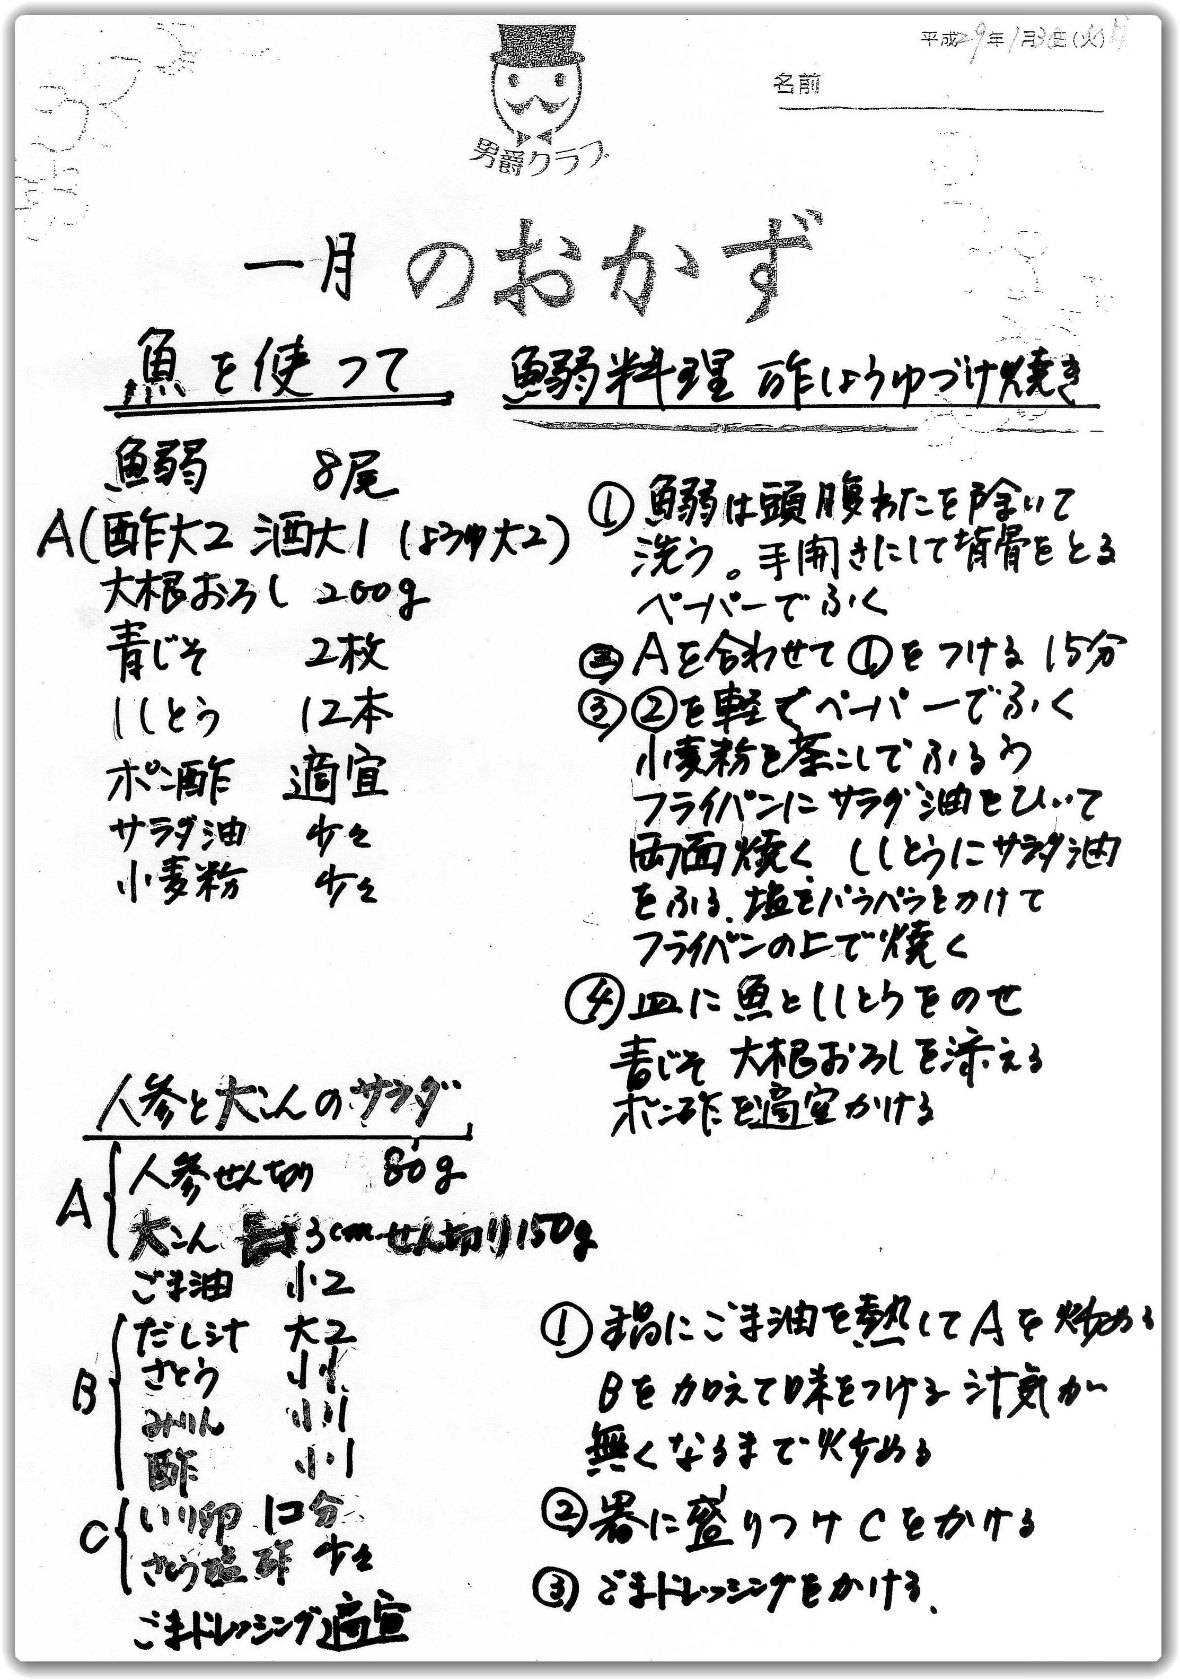 平成29年1月30日(火)
名前
男爵クラブ
一月のおかず
魚を使って
鰯料理 酢しょうゆづけ焼き
鰯 8尾
A(酢大2 酒大1 しょうゆ大2)
大根おろし 200g
青じそ 2枚
ししとう 12本
ポン酢 適宜
サラダ油 少々
小麦粉 少々
① 鰯は頭腹わたを除いて
洗う。手開きにして背骨をとる
ペーパーでふく
② Aを合わせて①をつける 15分
③ ②を軽くペーパーでふく
小麦粉を茶こしでふるう
フライパンにサラダ油をひいて
両面焼く、ししとうにサラダ油
をふる、塩をパラパラとかけて
フライパンの上で焼く
④ 皿に魚とししとうをのせ
青じそ 大根おろしを添える
ポン酢を適宜かける
人参と大こんのサラダ
A 人参せん切り 80g
大こん 長さ3cmせん切り150g
ごま油 小2
B だし汁 大2
さとう 小1
みりん 小1
酢 小1
C いり卵 1コ分
さとう 塩 酢 少々
ごまドレッシング適宜
① 鍋にごま油を熱してAを炒める
Bを加えて味をつける 汁気が
無くなるまで炒める
② 器に盛りつけCをかける
③ ごまドレッシングをかける、